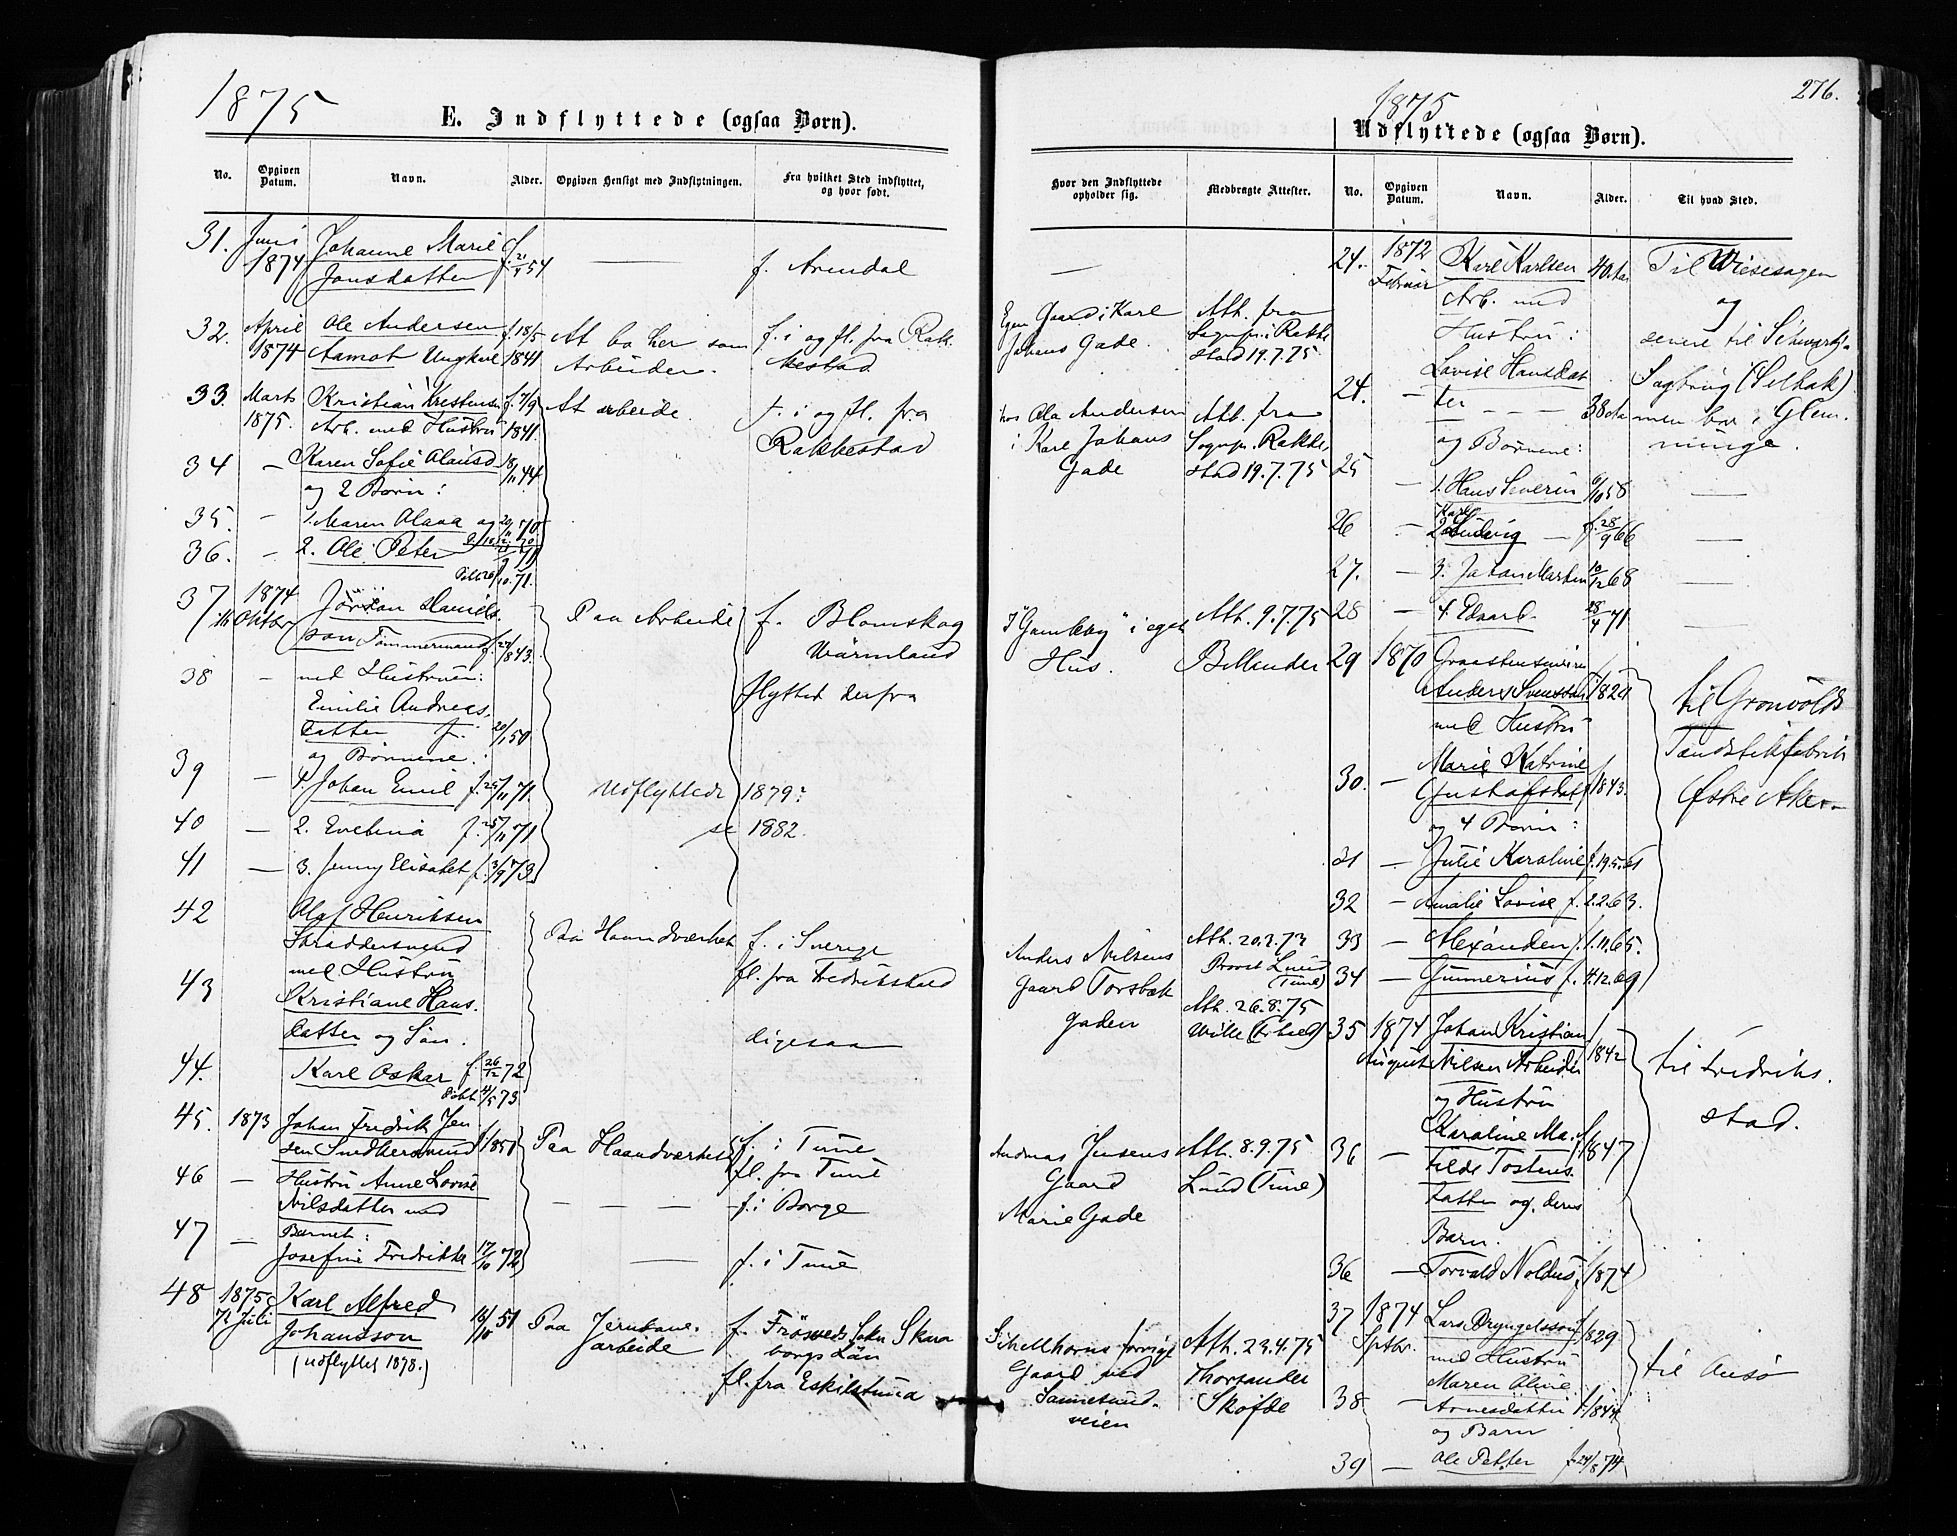 1875
E. Indflyttede (ogsaa Børn).
No.
Opgiven Datum.
Navn.
Alder.
Opgiven Hensigt med Indflytningen.
Fra hvilket Sted indflyttet, og hvor født.
31. Juni 1874
Johanne Marie
Jonsdatter
f. 21/4 54
f. Arendal
32. April 1874
Ole Andersen
Aamot Ungkarl
f. 18/5 1841
At bo her som
Arbeider.
f. i og fl. fra Rak
kestad
33. Marts 1875.
Kristian Krestensen
Arb. med Hustru
f. 7/9 1841.
At arbeide.
f. i og fl. fra
Rakkestad
34 —
Karen Sofie Olausd
18/11 44
og 2 Børn:
35. —
1. Maren Olava og 29/11 70
36. —
2. Ole Peter
Døbt 26/10. 71.
37 1874
Oktbr
Jörgan Daniels
son Tömmermand f. 24/ 843.
Paa Arbeide
f. Blomskog
Wärmland
flyttet derfra
38 —
med Hustruen:
Emilie Andreas
datter f. 20/1 50
og Børnene:
39 —
1. Johan Emil f. 25/11 71.
Udflyttede 1879?
40 —
2. Evelina f. 25/11 71
se 1882.
41 —
3. Jenny Elisabet f. 3/9 73.
42
Olaf Henriksen
Skræddersvend
med Hustru
Paa Haandværket
f. i Sverige
fl. fra Fredrikstad
43
Kristiane Hans.
datter og Søn.
digesaa
44.
Karl Oskar f. 26/12 72
Døbt 4/5 73
45. 1873
Johan Fredrik Jen
sen Snedkersvend f. 1850
Paa Haandværket
f. i Tune
fl. fra Tune
46 —
Hustru Anne Lovise
Nilsdatter med
— — — — f. i Borge
47 —
Barnet:
Josefine Fredrikke 17/10 72
— f. i Tune
48 1875
Juli
Karl Alfred
Johansson
(udflyttet 1878.)
16/10 51
Paa Jernbane.
arbeide
f. Frösveds Sokn Skara
borgs Län
fl. fra Eskilstuna
276.
1875
Udflyttede (ogsaa Børn).
Hvor den Indflyttede opholder sig.
Medbragte Attester.
No.
Opgiven Datum.
Navn.
Alder.
Til hvad Sted.
Egen Gaard i Karl
Johans Gade.
Att. fra
Sognepr. i Rakke
stad 19.7.75
hos Ola Andersen
i Karl Johans
Gade
Att. fra
Sognepr. Rakke,
stad 19.7.75
i eget
Hus.
Att. 9.7.75
Anders Nilsens
Gaard Torsbæk
gaden
Provst Lund
(Tune)
Att. 26.8.75
Wille
Andreas Jensens
Gaard
Marie Gade
Att. 8.9.75
Lund (Tune)
Schellhorns forrige
Gaard ved
Sannesund.
veien
Att. 23.4.75
Thorsander
Sköfde
24. 1872
Februar
Karl Karlsen
40 Aar
Arb. med
Hustru:
Til Wiesesagen
og
senere til
Sagbrug (Selbak)
men bor i Glem.
minge.
24. —
Lovise Hansdat
ter — — — 38 Aar
og Børnene:
25 —
1. Hans Severin 6/10 58 —
26 —
2. Karl Ludvig — f. 28/9 66 —
27. —
3. Johan Martin 10/12 68 —
28 —
4. Edvard. 28/4 71 —
29 1870
Anders Svensson f. 1824
med Hustru
til Grønvolds
Tændstikfabrik
Østre Aker
30. —
Marie Katrine
Gustafsdat f. 1843.
og 4 Børn:
31 —
Julie Karoline f. 19.5.61
32 —
Amalie Lovise f. 2.2.63.
33 —
Alexander f. 1.11.65.
34 —
Gunnerius f. 4.12.69
35 1874
August
Johan Kristian
Nilsen Arbeider
f. 1842
og Hustru
til Fredriks.
stad.
36 —
Karoline Ma.
tilde Tostens.
datter og deres
f. 1847
Barn:
36 —
Torvald Noldus f. 1874
37 1874
Septbr.
Lars Bryngelsson f. 1829
med Hustru
til Onsø
38. —
Maren Oline
Arnesdatter f. 1844
og Barn
39 —
Ole Petter f. 24/8 74